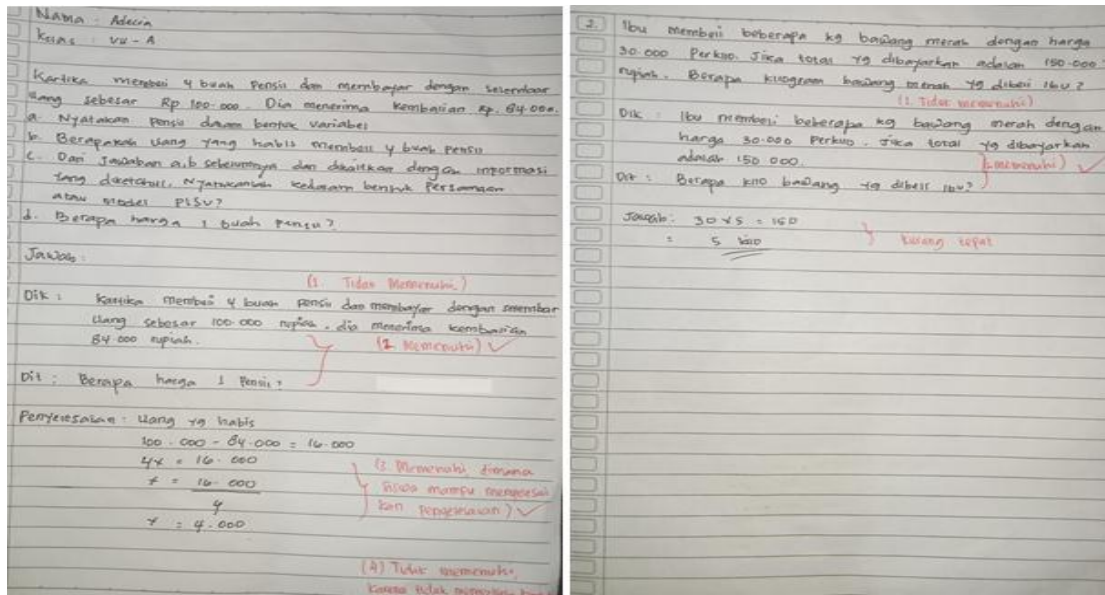 Nama : Adecia
Kelas : VII - A
Kartika membeli 4 buah Pensil dan membayar dengan selembar
uang sebesar Rp 100.000. Dia menerima kembalian Rp. 84.000.
a. Nyatakan Pensil dalam bentuk variabel
b. Berapakah uang yang habis membeli 4 buah Pensil
c. Dari Jawaban a,b sebelumnya dan dikaitkan dengan informasi
yang diketahui, Nyatakanlah kedalam bentuk Persamaan
atau Model PLSV?
d. Berapa harga 1 buah Pensil?
Jawab :
(1. Tidak Memenuhi)
Dik : Kartika membeli 4 buah Pensil dan membayar dengan selembar
uang sebesar 100.000 rupiah. dia menerima kembalian
84.000 rupiah.
(2. Memenuhi) ✓
Dit : Berapa harga 1 Pensil?
Penyelesaian : Uang yg habis
100.000 - 84.000 = 16.000
4x = 16.000
x = 16.000
4
x = 4.000
(3. Memenuhi dimana
siswa mampu menyelesai
kan penyelesaian) ✓
(4) Tidak memenuhi,
karena tidak
2. Ibu membeli beberapa kg bawang merah dengan harga
30.000 Perkilo. Jika total yg dibayarkan adalah 150.000
rupiah. Berapa kilogram bawang merah yg dibeli Ibu?
(1. Tidak memenuhi)
Dik : Ibu membeli beberapa kg bawang merah dengan
harga 30.000 Perkilo. Jika total yg dibayarkan
adalah 150 000.
(2. memenuhi) ✓
Dit : Berapa kilo bawang yg dibeli Ibu?
Jawab : 30 x 5 = 150
= 5 kilo
kurang tepat